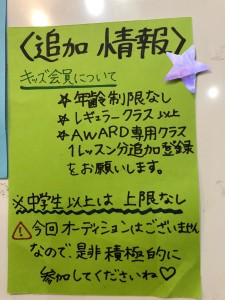 〈追加 情報〉
キッズ会員について
★年齢制限なし
★レギュラークラス以上
★AWARD専用クラス
1レッスン分追加登録
をお願いします。
※中学生以上は 上限なし
⚠今回オーディションはございません
なので、是非 積極的に
参加してくださいね♡